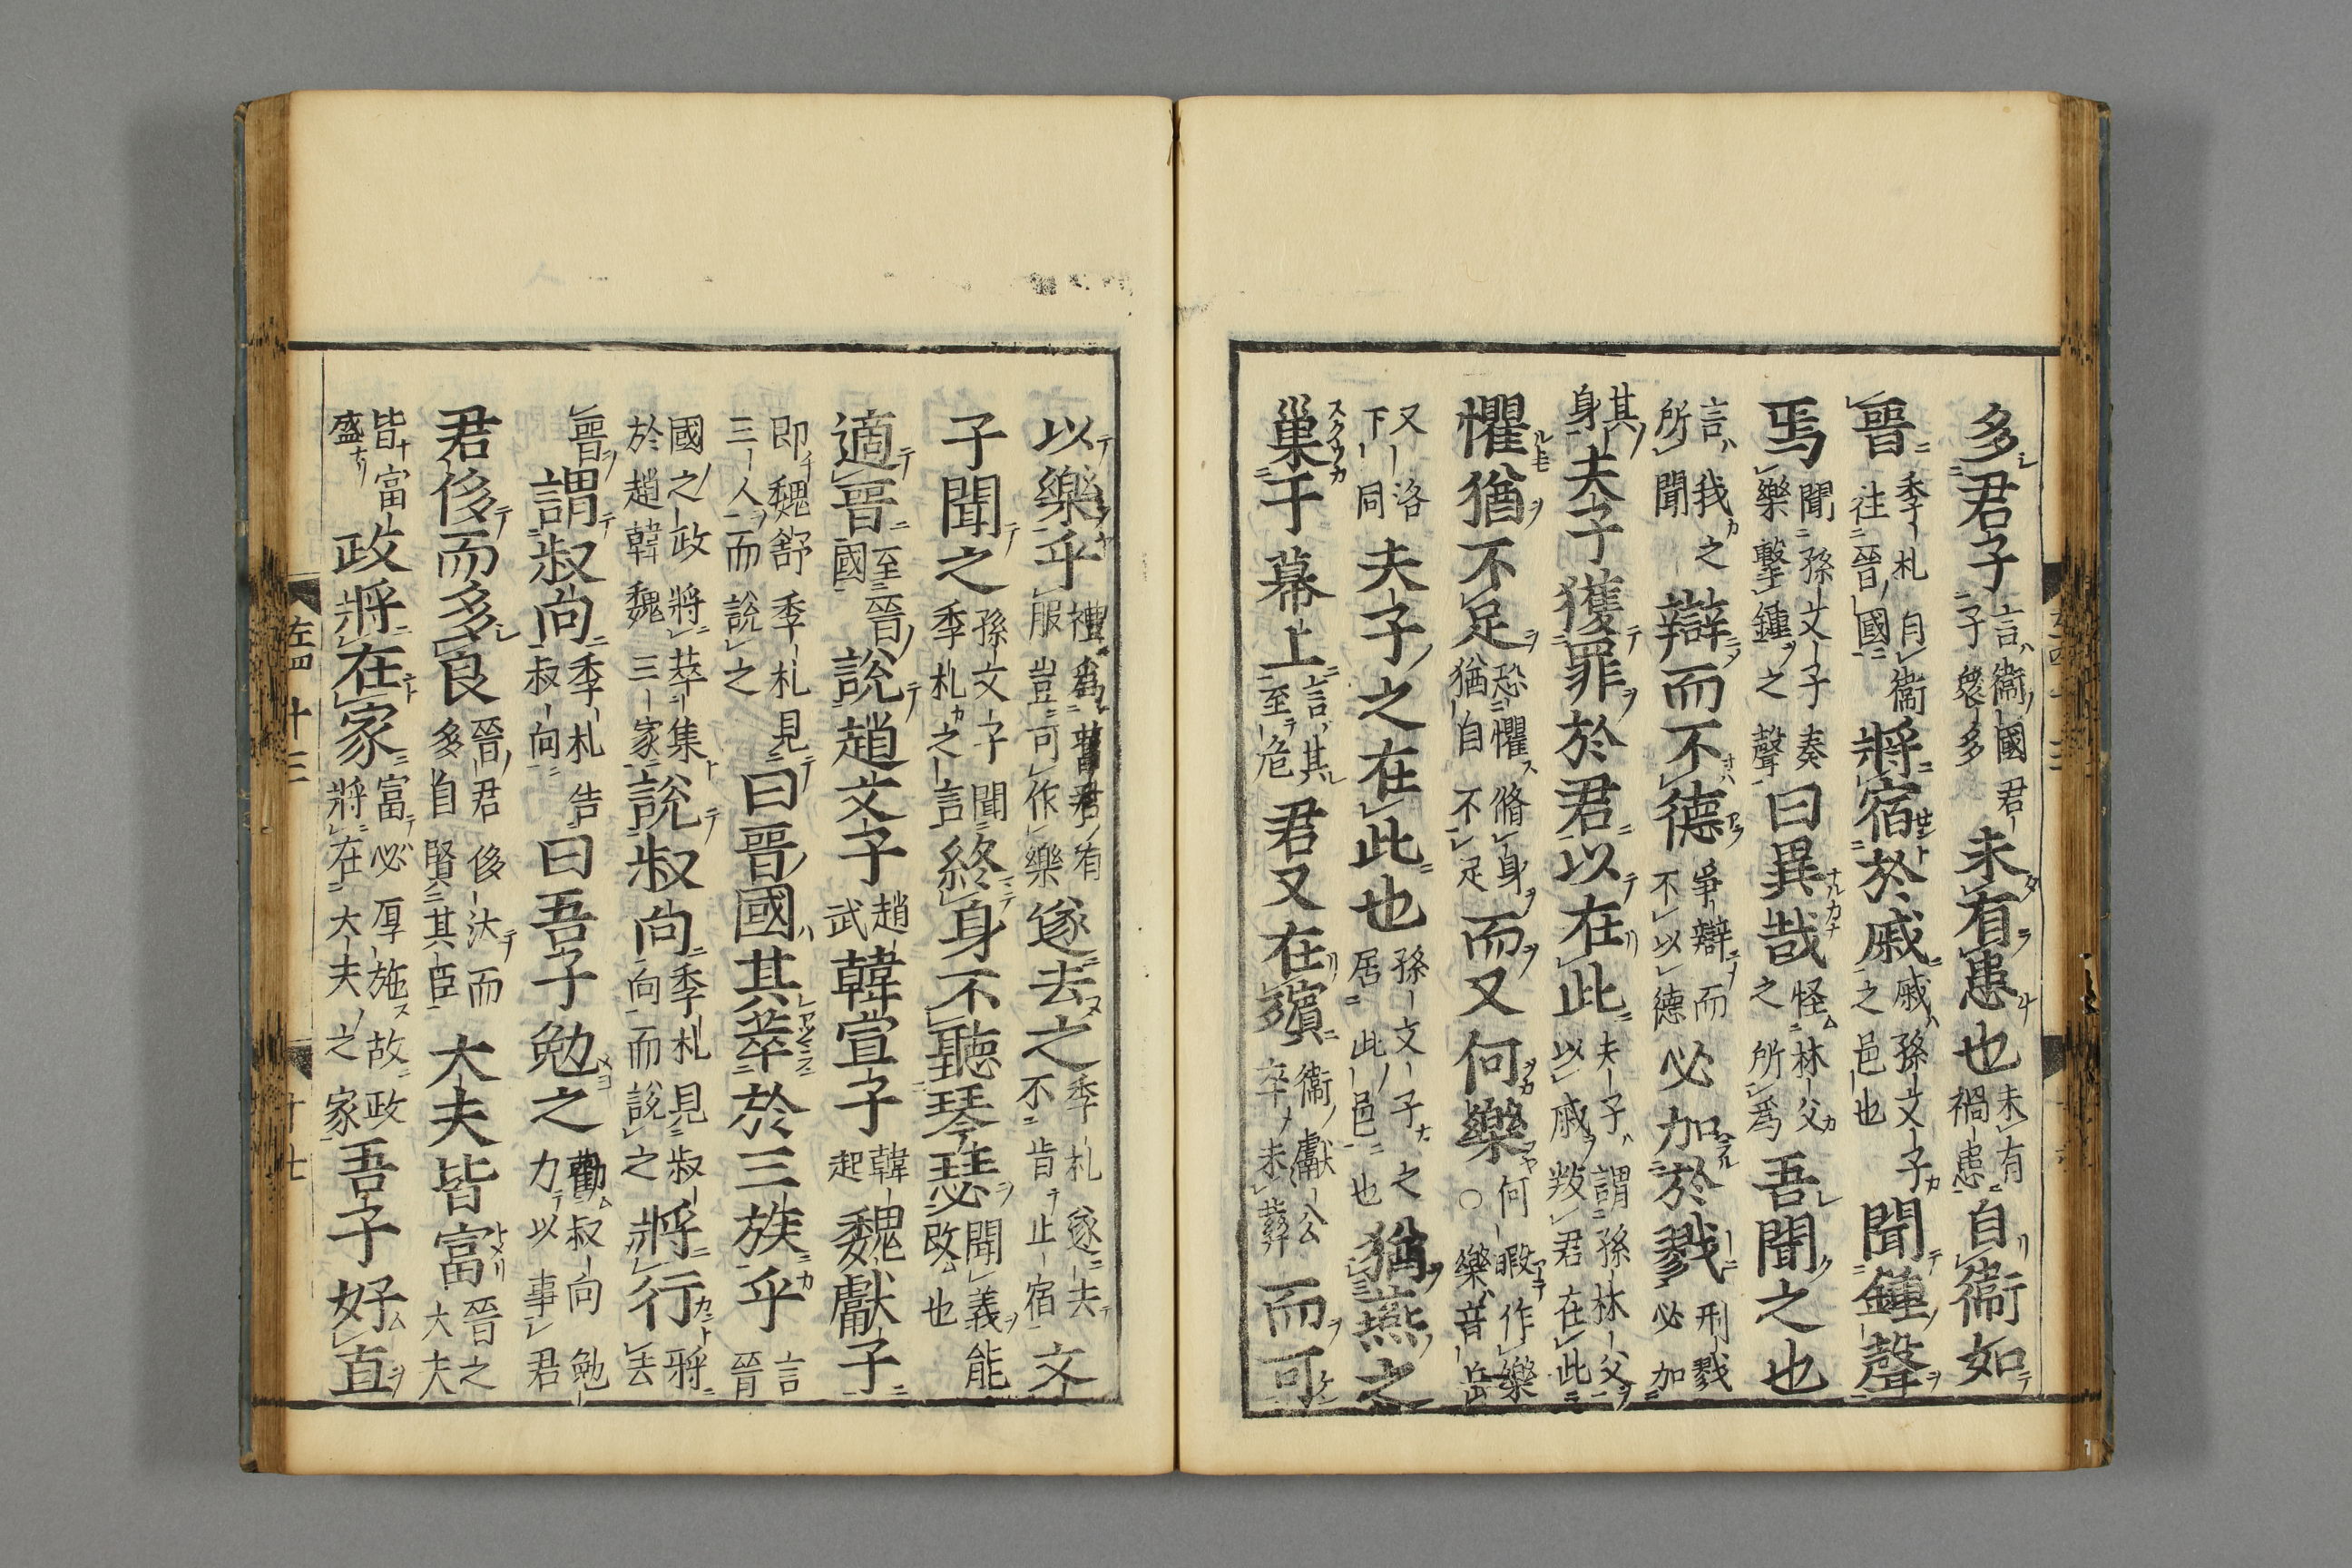 多君子言衞國君子衆多未有患也未有禍患自衞如
晉季札自衞往晉國將宿於戚戚孫文子之邑也聞鍾聲
焉聞孫文子奏樂擊鍾之聲曰異哉怪林父之所爲吾聞之也
言我之所聞辯而不德爭辯而不以德必加於戮刑戮必加
其身夫子獲罪於君以在此夫子謂孫林父以戚叛君在此
懼猶不足恐懼脩身猶自不足而又何樂何暇作樂○樂音岳
又洛下同夫子之在此也孫文子之居此邑也猶燕之
巢于幕上言其至危君又在殯衞獻公卒未葬而可
以樂乎禮爲舊君有服豈可作樂遂去之季札遂去不肯止宿文
子聞之孫文子聞季札之言終身不聽琴瑟聞義能改也
適晉至晉國說趙文子趙武韓宣子韓起魏獻子
即魏舒季札見三人而說之曰晉國其萃於三族乎言晉
國之政將萃集於趙韓魏三家說叔向季札見叔向而說之將行將去
晉謂叔向季札告叔向曰吾子勉之勸叔向勉力以事君
君侈而多良晉君侈汰而多自賢其臣大夫皆富晉之大夫
皆富盛政將在家富必厚施故政將在大夫之家吾子好直
左四 十三
十七